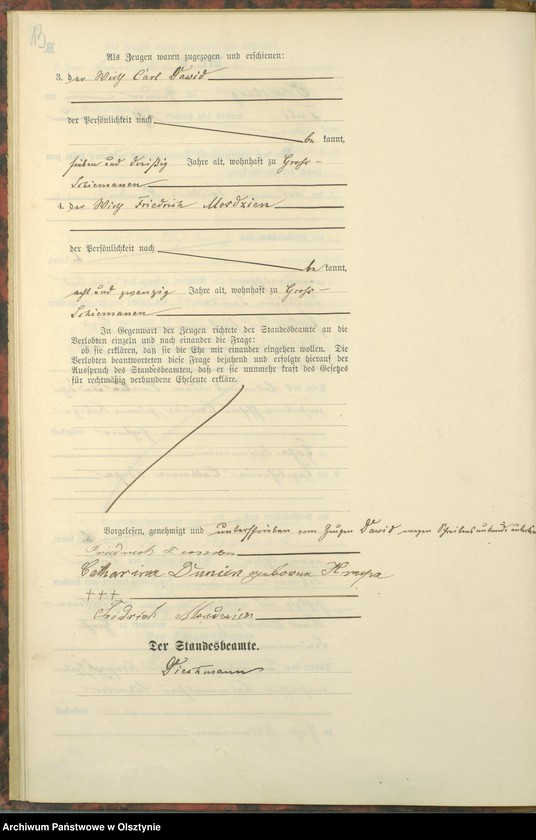 13.
Als Zeugen waren zugezogen und erschienen:
3. der Wirth Carl David
der Persönlichkeit nach
be kannt,
sieben und dreißig Jahre alt, wohnhaft zu Groß-
Schiemanen
4. der Wirth Friedrich Mosdzien
der Persönlichkeit nach
be kannt,
acht und zwanzig Jahre alt, wohnhaft zu Groß-
Schiemanen
In Gegenwart der Zeugen richtete der Standesbeamte an die
Verlobten einzeln und nach einander die Frage:
ob sie erklären, daß sie die Ehe mit einander eingehen wollen. Die
Verlobten beantworteten diese Frage bejahend und erfolgte hierauf der
Ausspruch des Standesbeamten, daß er sie nunmehr kraft des Gesetzes
für rechtmäßig verbundene Eheleute erkläre.
Vorgelesen, genehmigt und unterschrieben vom Zeugen David wegen
Friedrich
Catharina Dunien geborene Krupa
†††
Mosdzien
Der Standesbeamte.
Dieckmann
Archiwum Państwowe w Olsztynie